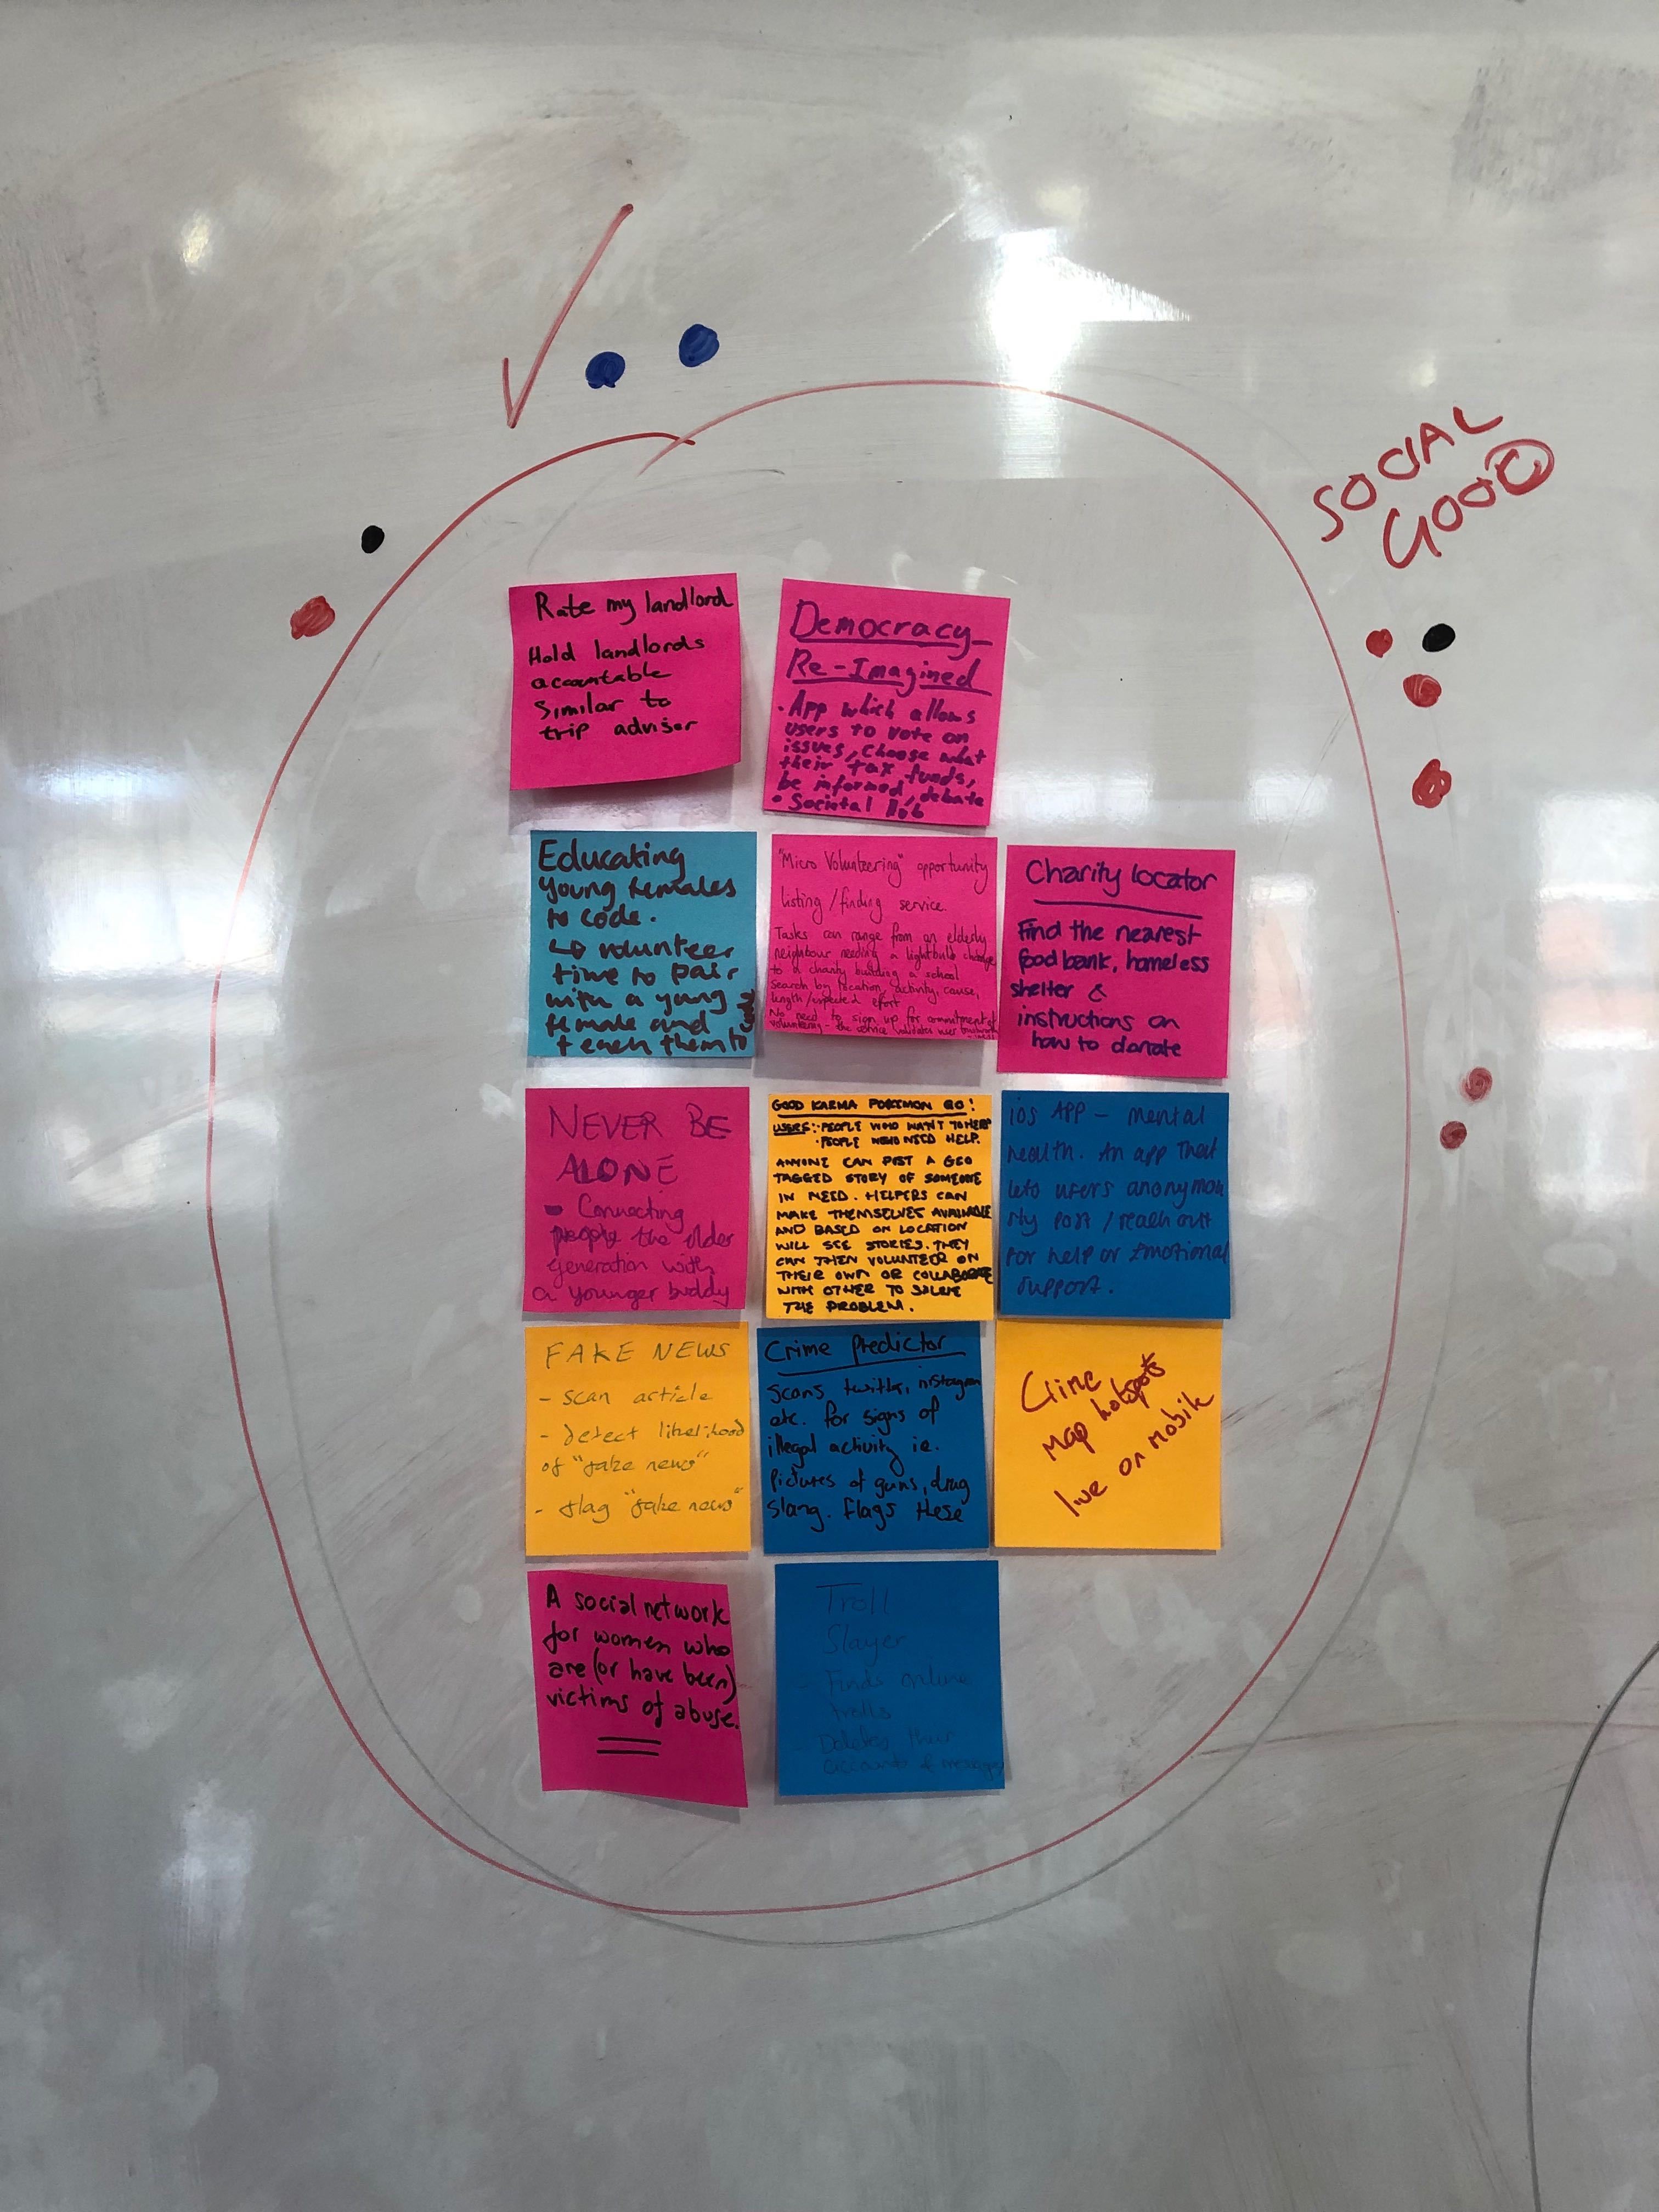 SOCIAL
GOOD
Rate my landlord
Hold landlords
accountable
Similar to
trip adviser
Democracy
Re-Imagined
• App which allows
users to vote on
issues, choose what
their tax funds,
be informed, debate
• Societal Hub
Educating
young females
to code.
↳ volunteer
time to pair
with a young
female and
teach them to
code
"Micro Volunteering" opportunity
listing/finding service.
Tasks can range from an elderly
neighbour needing a lightbulb change
to a charity building a school
Search by location, activity, cause,
length/expected effort
No need to sign up for commitment of
volunteering - the service validates user
Charity locator
Find the nearest
food bank, homeless
shelter &
instructions on
how to donate
NEVER BE
ALONE
- Connecting
people the older
generation with
a younger buddy
GOOD KARMA POKEMON GO!
USERS: • PEOPLE WHO WANT TO HELP
• PEOPLE WHO NEED HELP.
ANYONE CAN POST A GEO
TAGGED STORY OF SOMEONE
IN NEED. HELPERS CAN
MAKE THEMSELVES AVAILABLE
AND BASED ON LOCATION
WILL SEE STORIES. THEY
CAN THEN VOLUNTEER ON
THEIR OWN OR COLLABORATE
WITH OTHER TO SOLVE
THE PROBLEM.
iOS APP - mental
health. An app that
lets users anonymou
sly post / reach out
for help or Emotional
support.
FAKE NEWS
- scan article
- detect likelihood
of "fake news"
- flag "fake news"
Crime predictor
Scans twitter, instagram
etc. for signs of
illegal activity ie.
pictures of guns, drug
slang. Flags these
Crime
Map hotspots
live on mobile
A social network
for women who
are (or have been)
victims of abuse.
Troll
Slayer
- Finds online
trolls
Deletes their
accounts & messages